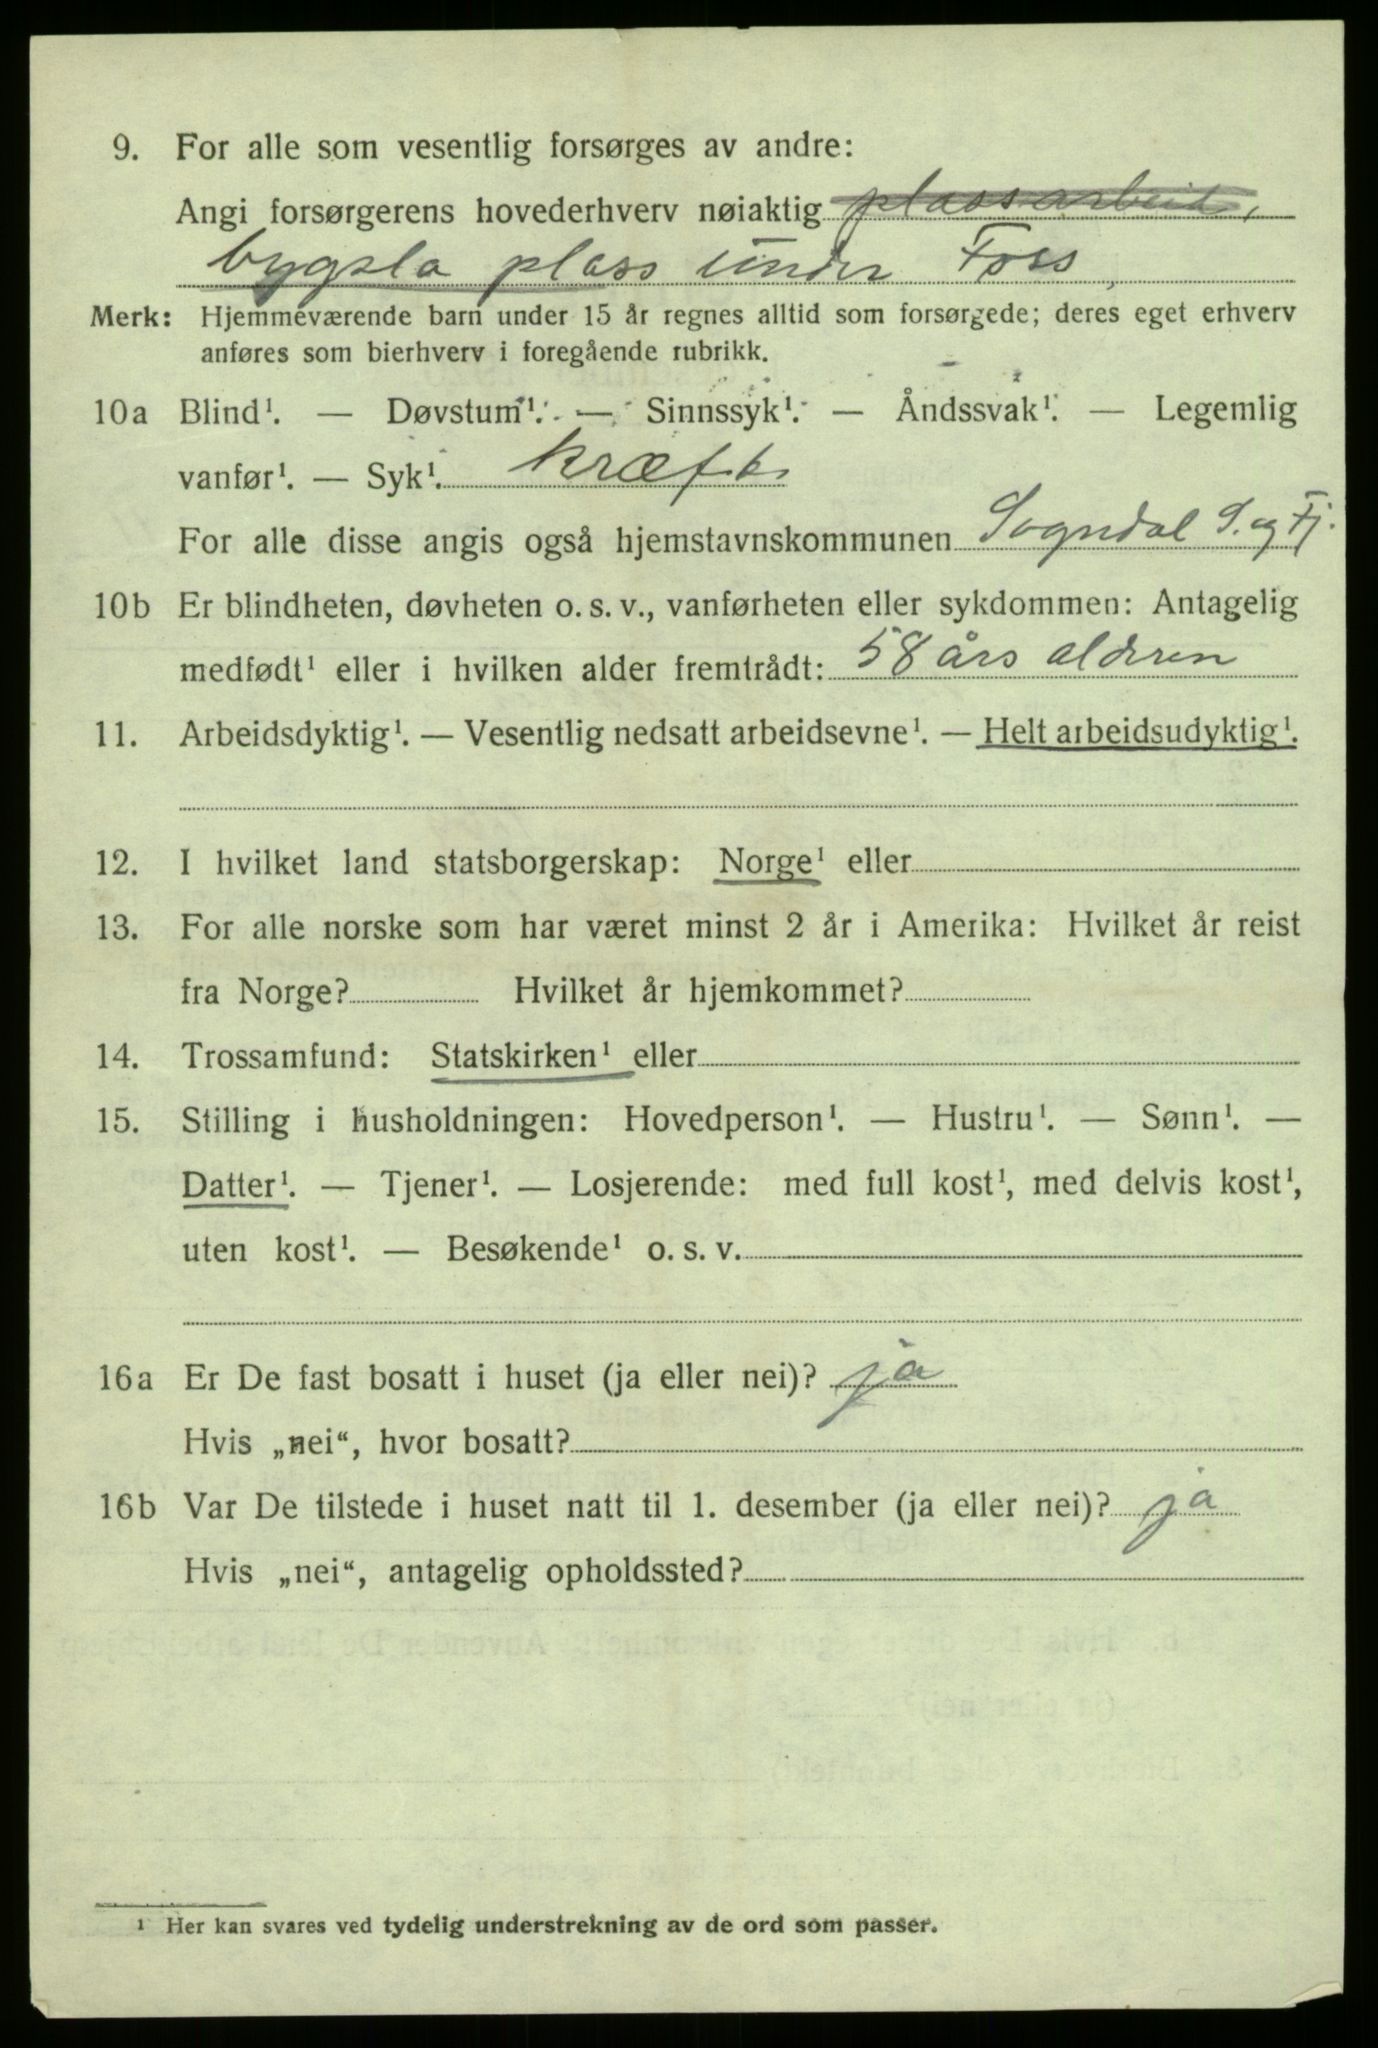 9. For alle som vesentlig forsørges av andre:
Angi forsørgerens hovederhverv nøiaktig plassarbeid,
bygsla plass under Foss,
Merk: Hjemmeværende barn under 15 år regnes alltid som forsørgede; deres eget erhverv
anføres som bierhverv i foregående rubrikk.
10a Blind¹. — Døvstum¹. — Sinnssyk¹. — Åndssvak¹. — Legemlig
vanfør¹. — Syk¹. kræft
For alle disse angis også hjemstavnskommunen Sogndal S. og Fj.
10b Er blindheten, døvheten o. s. v., vanførheten eller sykdommen: Antagelig
medfødt¹ eller i hvilken alder fremtrådt: 58 års alderen
11. Arbeidsdyktig¹. — Vesentlig nedsatt arbeidsevne¹. — Helt arbeidsudyktig¹.
12. I hvilket land statsborgerskap: Norge¹ eller
13. For alle norske som har været minst 2 år i Amerika: Hvilket år reist
fra Norge? Hvilket år hjemkommet?
14. Trossamfund: Statskirken¹ eller
15. Stilling i husholdningen: Hovedperson¹. — Hustru¹. — Sønn¹. —
Datter¹. — Tjener¹. — Losjerende: med full kost¹, med delvis kost¹,
uten kost¹. — Besøkende¹ o. s. v.
16a Er De fast bosatt i huset (ja eller nei)? ja
Hvis „nei“, hvor bosatt?
16b Var De tilstede i huset natt til 1. desember (ja eller nei)? ja
Hvis „nei“, antagelig opholdssted?
¹ Her kan svares ved tydelig understrekning av de ord som passer.